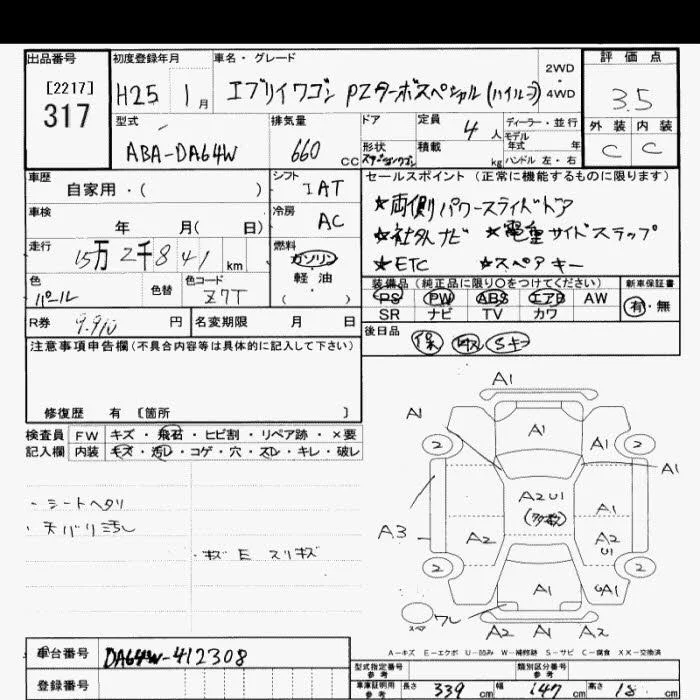 出品番号 初度登録年月 車名・グレード 2WD・4WD 評価点
[2217]
317 H25 1月 エブリイワゴン PZターボスペシャル(ハイルーフ) 3.5
型式 排気量 ドア 定員 4人 ディーラー・並行 外装 内装
モデル年式 年
ABA-DA64W 660cc 形状 ステーションワゴン 積載 kg ハンドル 左・右 C C
車歴 自家用・( ) シフト IAT セールスポイント(正常に機能するものに限ります)
車検 年 月( 日) 冷房 AC ★両側パワースライドドア
走行 15万2千841km 燃料 ガソリン ★社外ナビ ★電動サイドステップ
軽油 ★ETC ★スペアキー
( )
色 パール 色替 色コード Z7T 装備品(純正品に限り○をつけてください) 新車保証書
PS PW ABS エアB AW 有・無
SR ナビ TV カワ
R券 9.910円 名変期限 月 日 後日品 保 取 Sキー
注意事項申告欄(不具合内容等は具体的に記入して下さい)
修復歴 有 [箇所 ]
検査員 FW キズ・飛石・ヒビ割・リペア跡・×要
記入欄 内装 キズ・汚れ・コゲ・穴・スレ・キレ・破レ
・シートヘタリ
・天バリ汚れ
・キズ E スリキズ
A1
A1 A1 A1
2 2 A1
A2 U1 A1
A3 A2 A2 U1
2 2
A1 A1
スペア ワレ
A2 A1 A2
A-キズ E-エクボ U-凹み W-補修跡 S-サビ C-腐食 XX-交換済
車台番号 DA64W-412308
登録番号
型式指定番号 参考 類別区分番号 参考
車庫証明用 参考 長さ 339cm 幅 147cm 高さ 18 cm